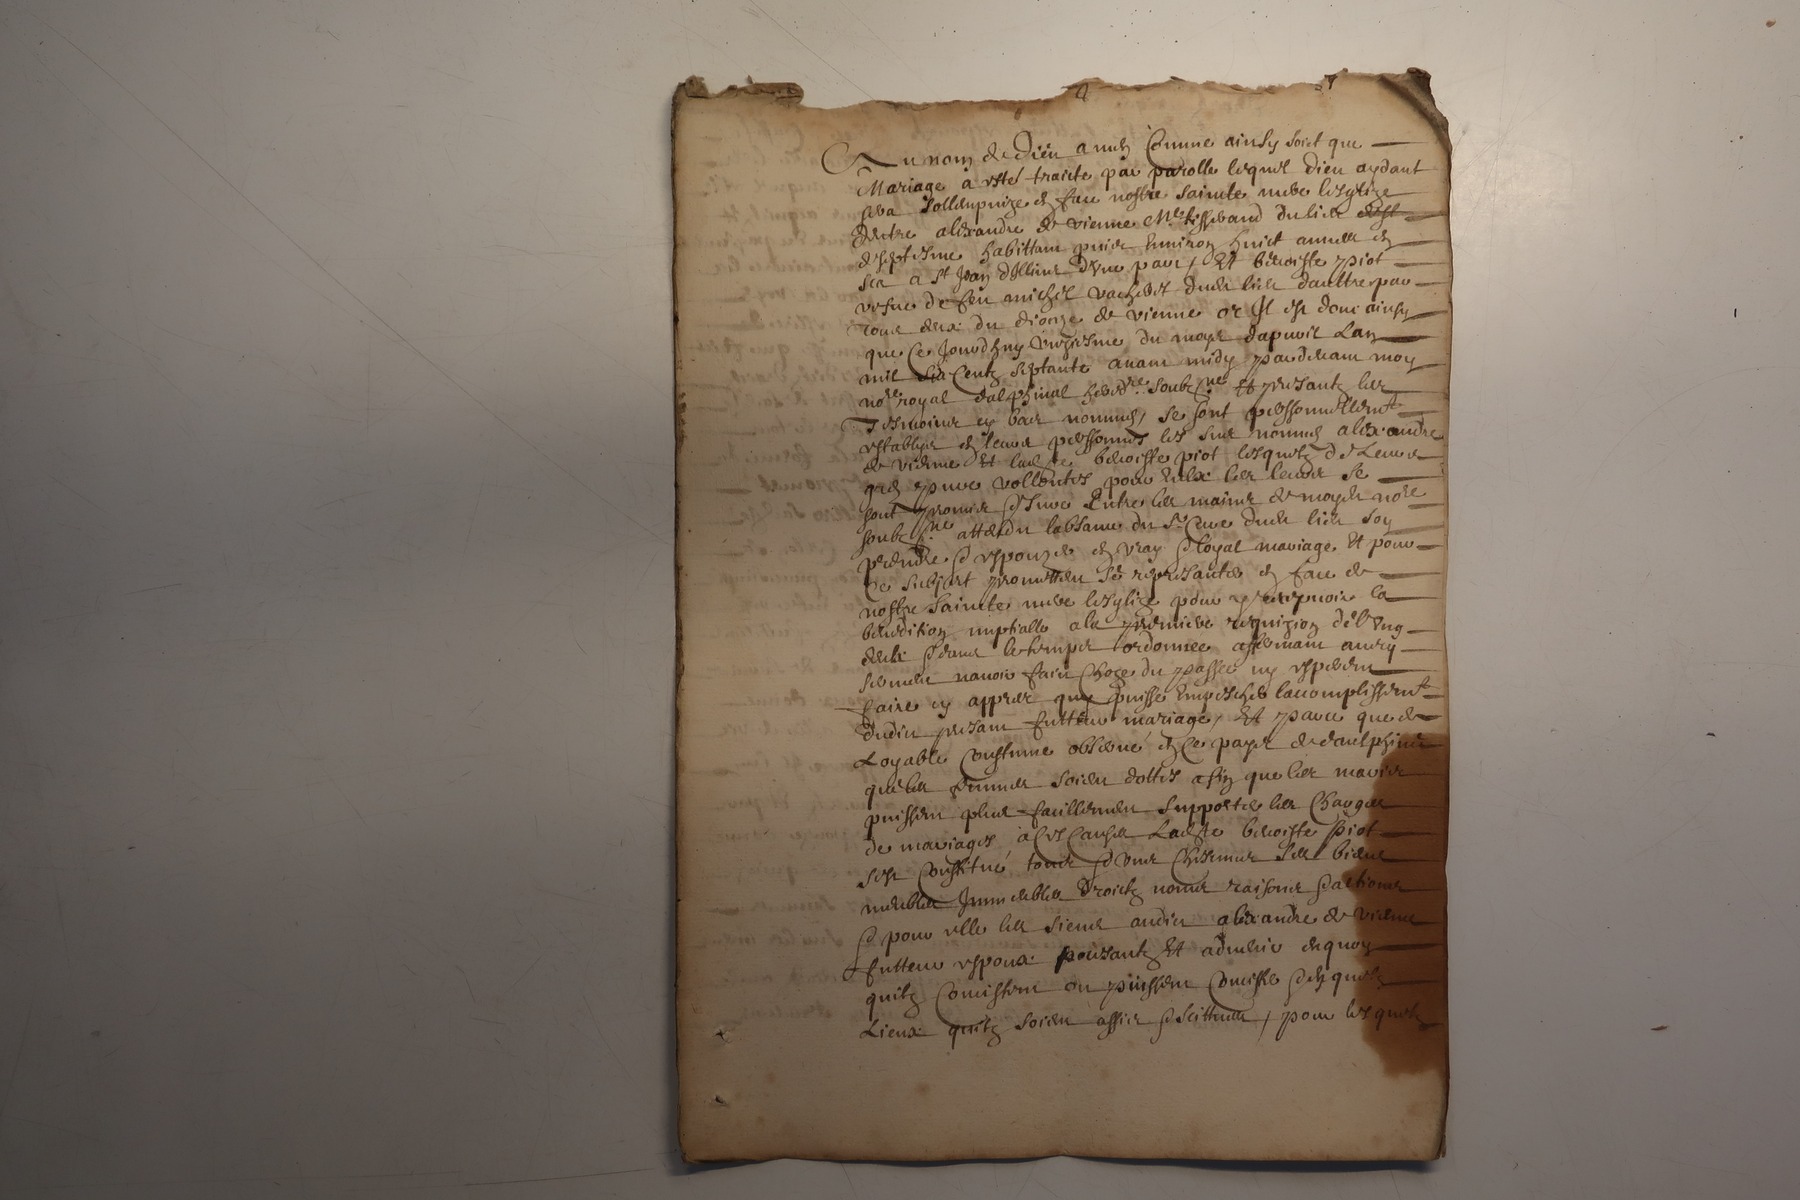 Au nom de Dieu amen Comme ainsy soict que
Mariage a esté traicté par parolle lequel dieu aydant
sera sollempnize en face nostre saincte mere lesglize
Entre alexandre de vienne Me tisserand du lieu
de septesme habittant puis environ huict annees en
sca a St Jean d'une part, Et benoiste piot
vefve de feu michel vachet dudt lieu daultre part
Tous deux du dioceze de vienne or Il est donc ainsy
que Ce Jourdhuy vingtiesme du moys dapvril Lan
mil six Centz septante avant midy pardevant moy
nore royal dalphinal heredre soubzne Et presantz les
Tesmoins en bas nommes, se sont personnellemt
establys en leurs personnes les sus nommes alexandre
de vienne Et ladte benoiste piot lesquels de Leurs
gres pures vollontes pour Eulx les leurs se
sont promis Entre les mains de moydt nore
soubzne attendu labsance du Sr Cure dudt lieu soy
prendre & espouzer en vray & loyal mariage Et pour
Ce subject promettent se represanter en face de
nostre saincte mere lesglize pour y recepvoir la
benediction nuptialle a la premiere requizion de lung
deulx & dans le temps ordonnee affermant
navoir faict Choze du passé ny esperent
faire cy appres que puisse Empescher lacomplissemt
dudit presant futteur mariage, Et parce que de
Loyable Coustume observé en Ce pays de daulphiné
que les femmes soient dottes afin que les maris
puissent plus facillement supporter les Charges
de mariages, a Ces Causes Ladte benoiste piot
sest Constitué tous & uns Chescuns ses biens
meubles Immeubles droictz noms raisons & actions
& pour elle les siens audit alexandre de vienne
futteur espoux presantz Et advenir enquoy
quilz Concistent ou puissent Concister & en quelz
Lieux quilz soient assis & scittues, pour lesquelz